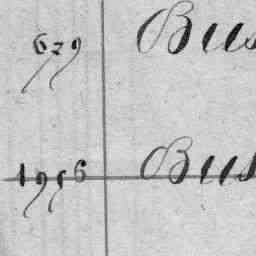 629 Bus
1956 Bus